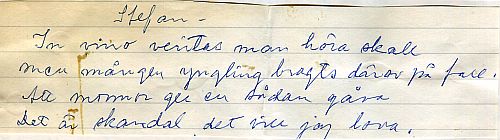 Stefan –
In vino veritas man höra skall
men mången yngling bragts därav på fall.
Att mormor ger en sådan gåva
Det är skandal, det vill jag lova.